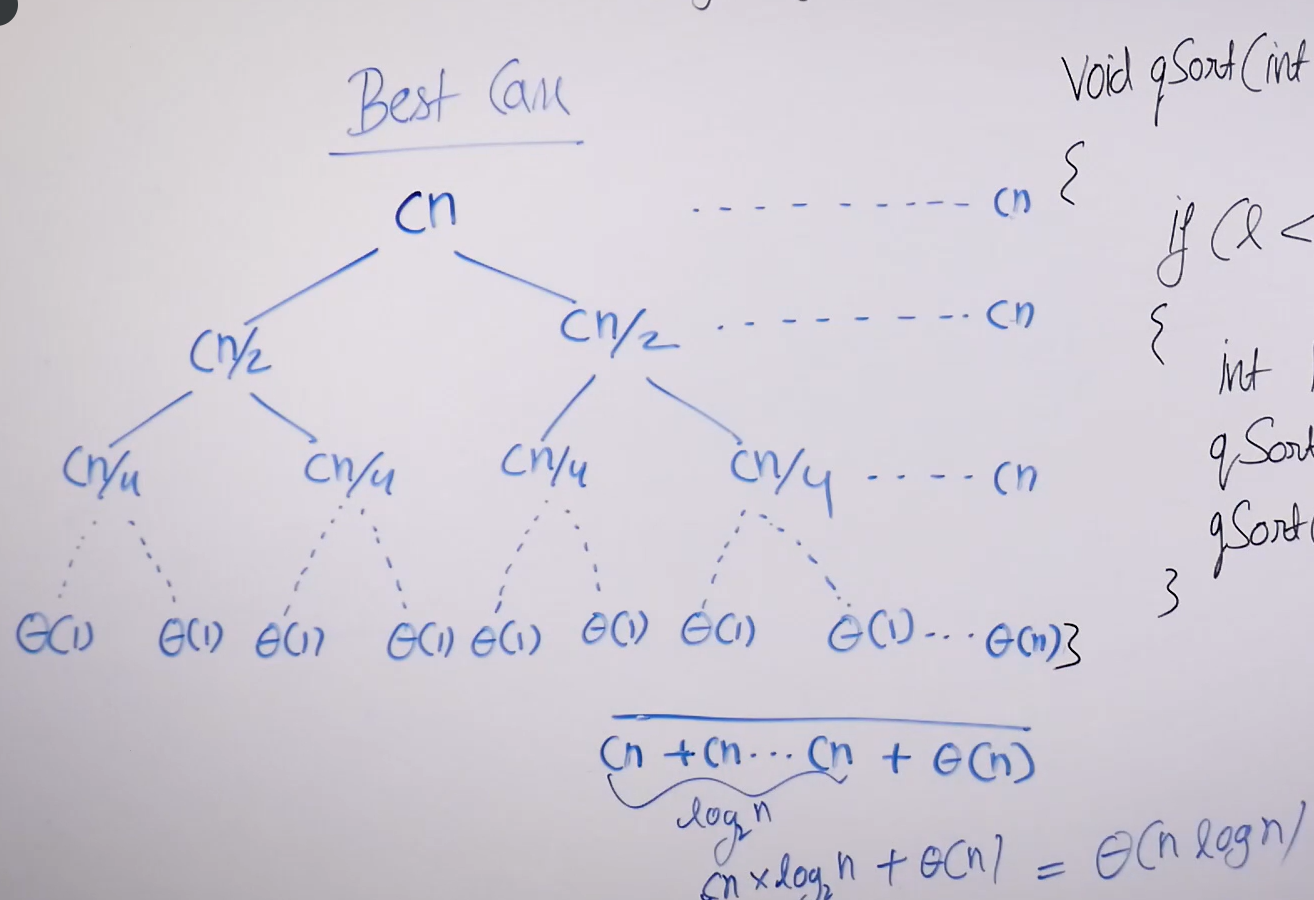 Best Case
Cn - - - - - - - - Cn
Cn/2 Cn/2 - - - - - - - - Cn
Cn/4 Cn/4 Cn/4 Cn/4 - - - - Cn
Θ(1) Θ(1) Θ(1) Θ(1) Θ(1) Θ(1) Θ(1) Θ(1) ... Θ(n)
Cn + Cn ... Cn + Θ(n)
log₂n
Cn × log₂n + Θ(n) = Θ(n log n)
Void qSort(int
{
if (l <
{
int
qSort
qSort(
}
}